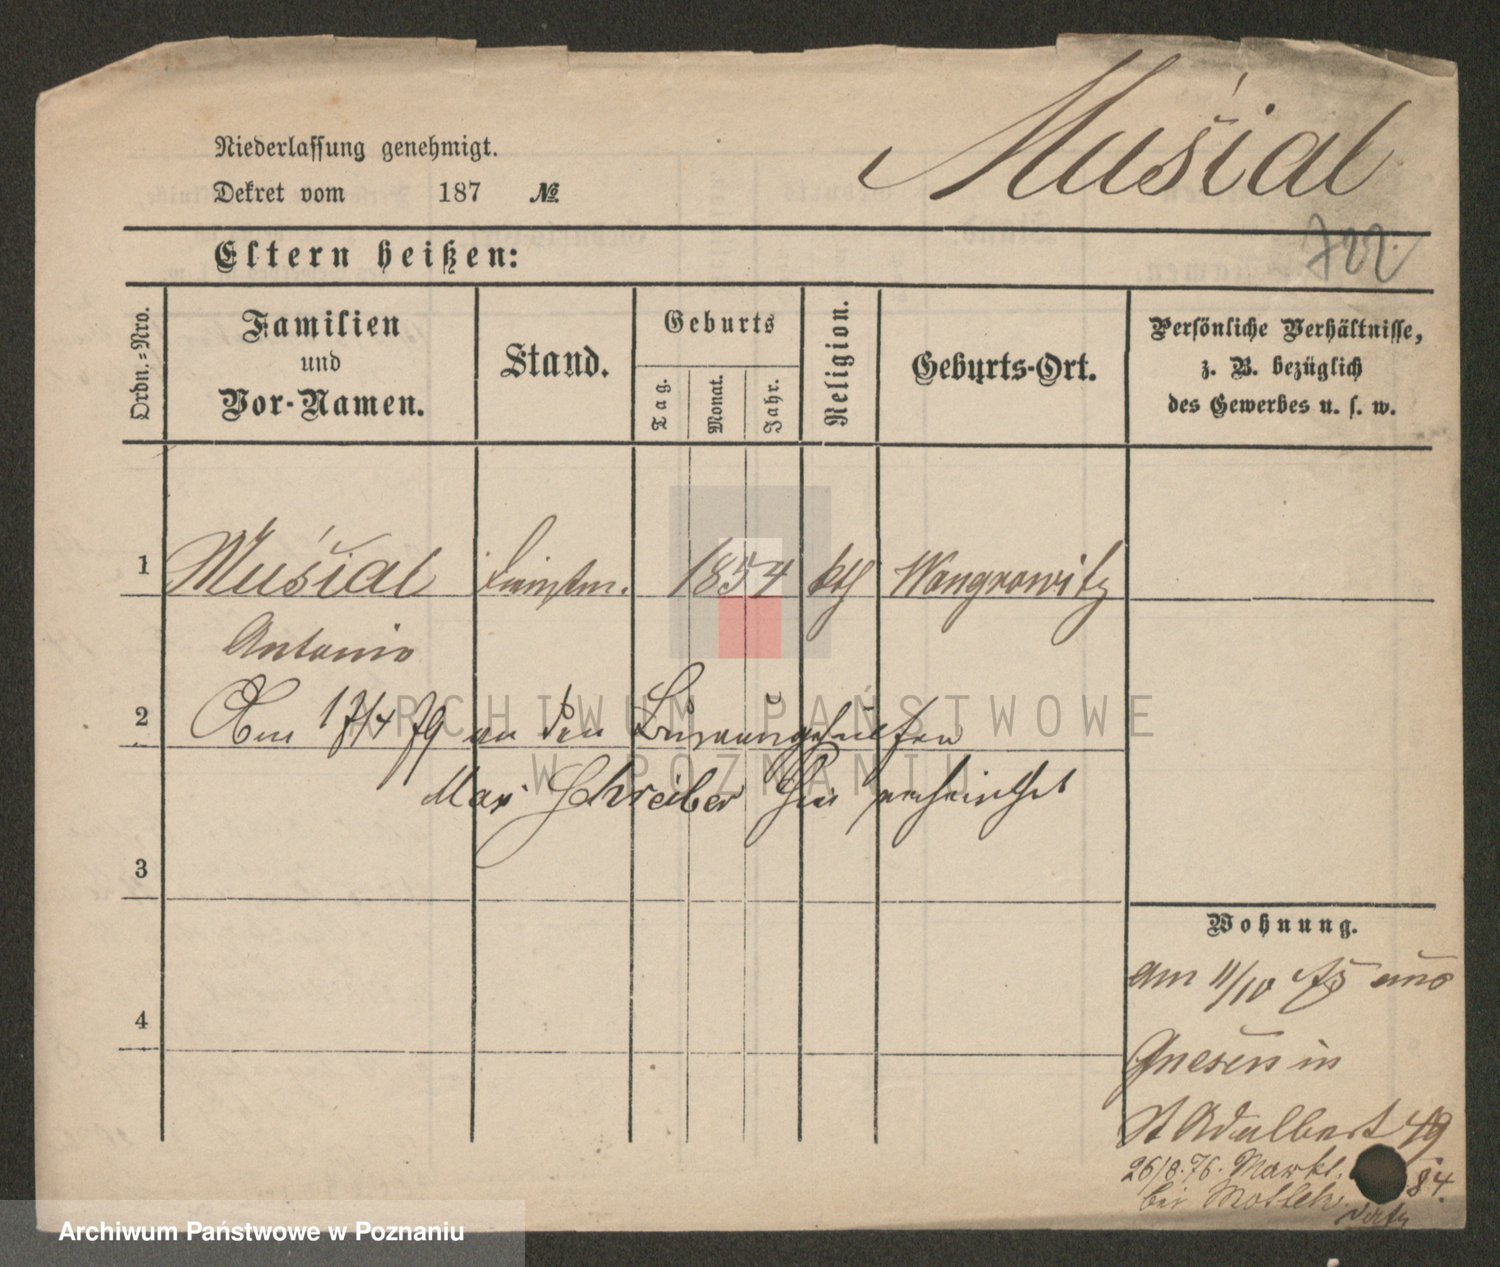 Niederlassung genehmigt.
Dekret vom 187 №
Muśial
722.
Eltern heißen:
Ordn.=Nro.
Familien
und
Vor-Namen.
Stand.
Geburts
Tag.
Monat.
Jahr.
Religion.
Geburts-Ort.
Persönliche Verhältnisse,
z. B. bezüglich
des Gewerbes u. s. w.
1 Muśial 1854 kth Wongrowitz
Antonie
2 Am 17/4 79 an den
Max Schreiber hier verheirathet
3
4
Wohnung.
am 11/10 75 aus
Gnesen in
St Adalbert 49
26/8.76. Markt. 84.
bei
ARCHIWUM PAŃSTWOWE
W POZNANIU
Archiwum Państwowe w Poznaniu